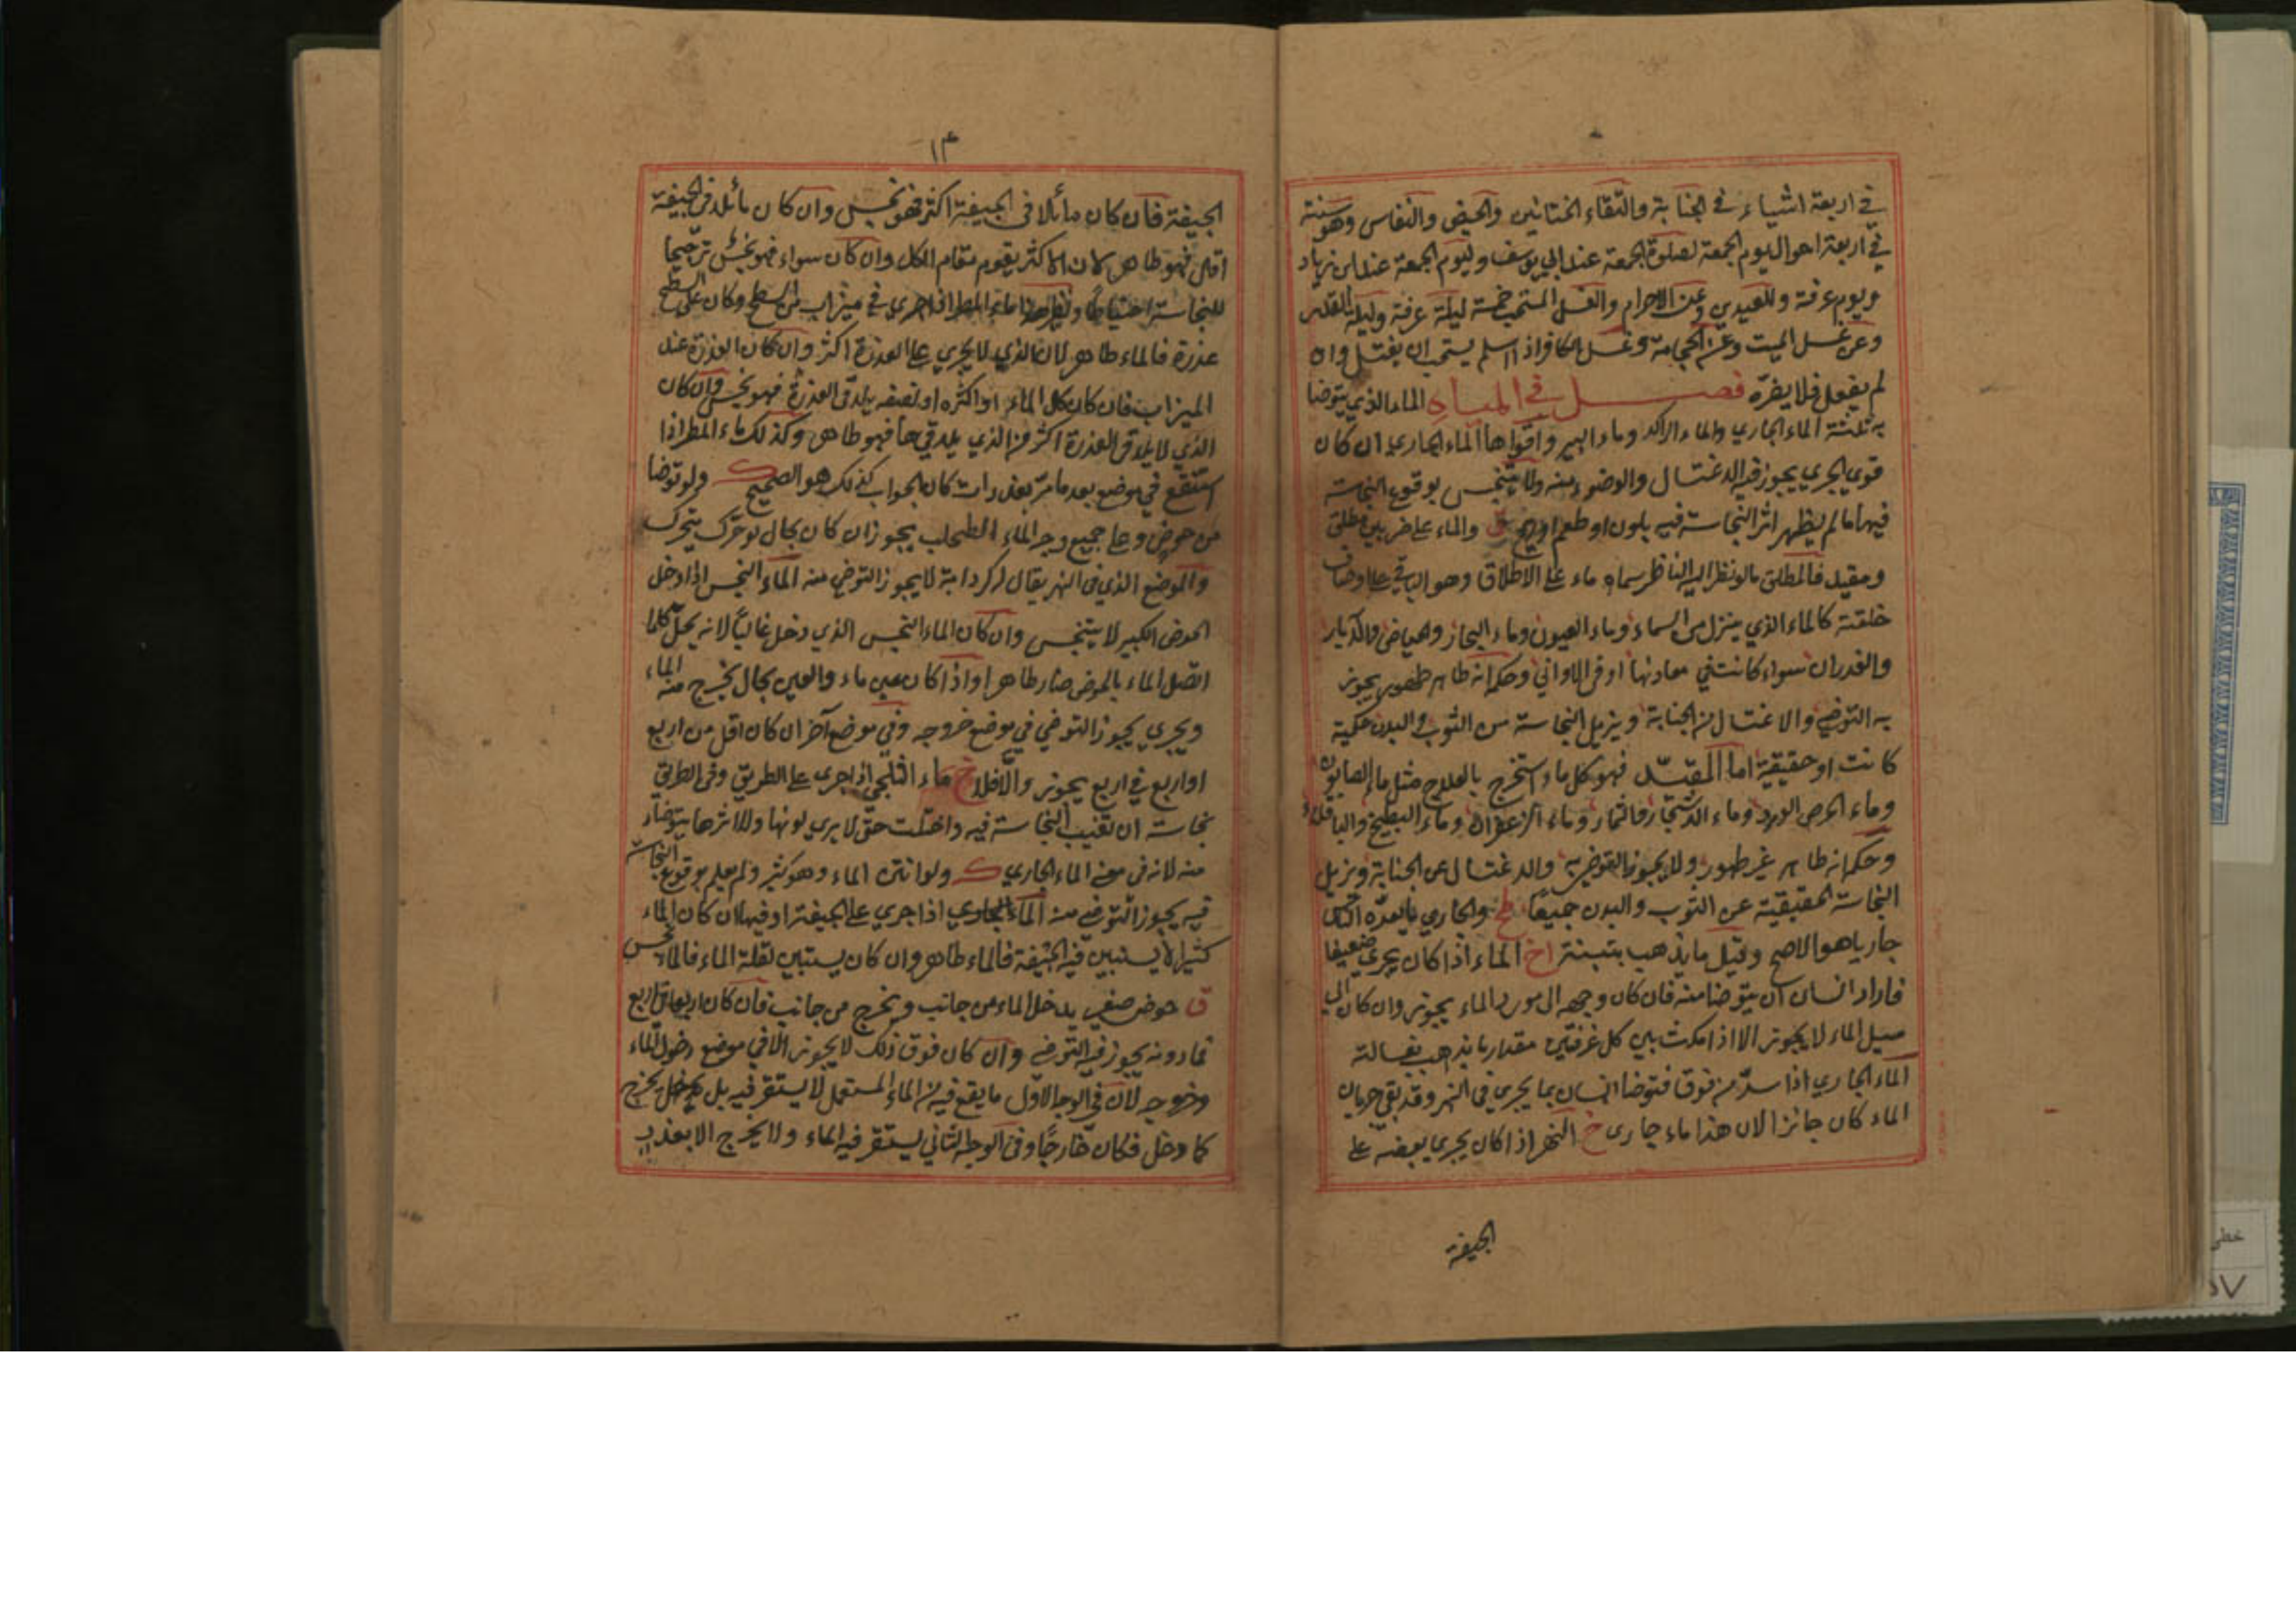 في اربعة اشياء في الجنابة والتقاء الختانين والحيض والنفاس وهو سنة
في اربعة احوال ليوم الجمعة لصلوة الجمعة عند ابي يوسف وليوم الجمعة عند ابن زياد
ويوم عرفة وللعيدين وعند الاحرام والغسل المستحب خمسة ليلة عرفة وليلة القدر
وعن غسل الميت وعن الحجامة وغسل الكافر اذا اسلم يستحب ان يغتسل وان
لم يفعل فلا يضره فصل في المياه الماء الذي يتوضا
به ثلثة الماء الجاري والماء الراكد وماء البير واقواها الماء الجاري ان كان
قوي الجري يجوز فيه الاغتسال والوضوء منه ولا يتنجس بوقوع النجاسة
فيها ما لم يظهر اثر النجاسة فيه بلون او طعم او ريح ق والماء على ضربين مطلق
ومقيد فالمطلق ما لو نظر اليه الناظر سماه ماء على الاطلاق وهو الباقي على اوصاف
خلقته كالماء الذي ينزل من السماء وماء العيون وماء البحار والحياض والابار
والغدران سواء كانت في معادنها او في الاواني وحكمه انه طاهر طهور يجوز
به التوضي والاغتسال من الجنابة ويزيل النجاسة من الثوب والبدن حكمية
كانت او حقيقية اما المقيد فهو كل ماء استخرج بالعلاج مثل ماء الصابون
وماء الحرض الورد وماء الاشجار والثمار وماء الزعفران وماء البطيخ والباقلاء
وحكمه انه طاهر غير طهور ولا يجوز التوضي به والاغتسال عن الجنابة ويزيل
النجاسة الحقيقية عن الثوب والبدن جميعا والجاري ما يعده الناس
جاريا هو الاصح وقيل ما يذهب بتبنة اخ الماء اذا كان يجري ضعيفا
فاراد انسان ان يتوضا منه فان كان وجهه الى مورد الماء يجوز وان كان الى
مسيل الماء لا يجوز الا اذا مكث بين كل غرفتين مقدار ما يذهب بغسالته
الماء الجاري اذا سد من فوق فتوضا انسان بما يجري في النهر وقد بقي جريان
الماء كان جائزا لان هذا ماء جاري خ النهر اذا كان يجري بعضه على
الجيفة
١٣
الجيفة فان كان ما يلاقي الجيفة اكثر فهو نجس وان كان ما يلاقي الجيفة
اقل فهو طاهر لان الاكثر يقوم مقام الكل وان كان سواء فهو نجس ترجيحا
للنجاسة احتياطا ونظير هذا ماء المطر اذا جري في ميزاب من السطح وكان على السطح
عذرة فالماء طاهر لان الذي لا يجري على العذرة اكثر وان كان العذرة عند
الميزاب فان كان كل الماء او اكثره او نصفه يلاقي العذرة فهو نجس وان كان
الذي لا يلاقي العذرة اكثر من الذي يلاقيها فهو طاهر وكذلك ماء المطر اذا
استنقع في موضع بعد ما مر بعذرات كان الجواب كذلك هو الصحيح ك ولو توضا
من حوض وعلى جميع وجه الماء الطحلب يجوز ان كان بحال لو حرك يتحرك
والموضع الذي في النهر يقال له كردابة لا يجوز التوضي منه الماء النجس اذا دخل
الحوض الكبير لا يتنجس وان كان الماء النجس الذي دخل غالبا لانه كلما
اتصل الماء بالحوض صار طاهرا واذا كان عين ماء والعين بحال يخرج منه الماء
ويجري يجوز التوضي في موضع خروجه وفي موضع آخر ان كان اقل من اربع
او اربع في اربع يجوز والا فلا خ ماء الثلج اذا جرى على الطريق وفي الطريق
نجاسة ان تغيب النجاسة فيه واختلت حتى لا يرى لونها ولا اثرها يتوضا
منه لانه في معنى الماء الجاري ك ولو انتن الماء وهو كثير ولم يعلم بوقوع النجاسة
فيه يجوز التوضي منه الماء الجاري اذا جرى على الجيفة او فيها ان كان الماء
كثيرا لا يستبين فيه الجيفة فالماء طاهر وان كان يستبين لقلة الماء فالماء نجس
ق حوض صغير يدخل الماء من جانب ويخرج من جانب فان كان اربعا في اربع
فما دونه يجوز فيه التوضي وان كان فوق ذلك لا يجوز الا في موضع دخول الماء
وخروجه لان في الوجه الاول ما يقع فيه من الماء المستعمل لا يستقر فيه بل يخرج
كما دخل فكان خارجا وفي الوجه الثاني يستقر فيه الماء ولا يخرج الا بعد